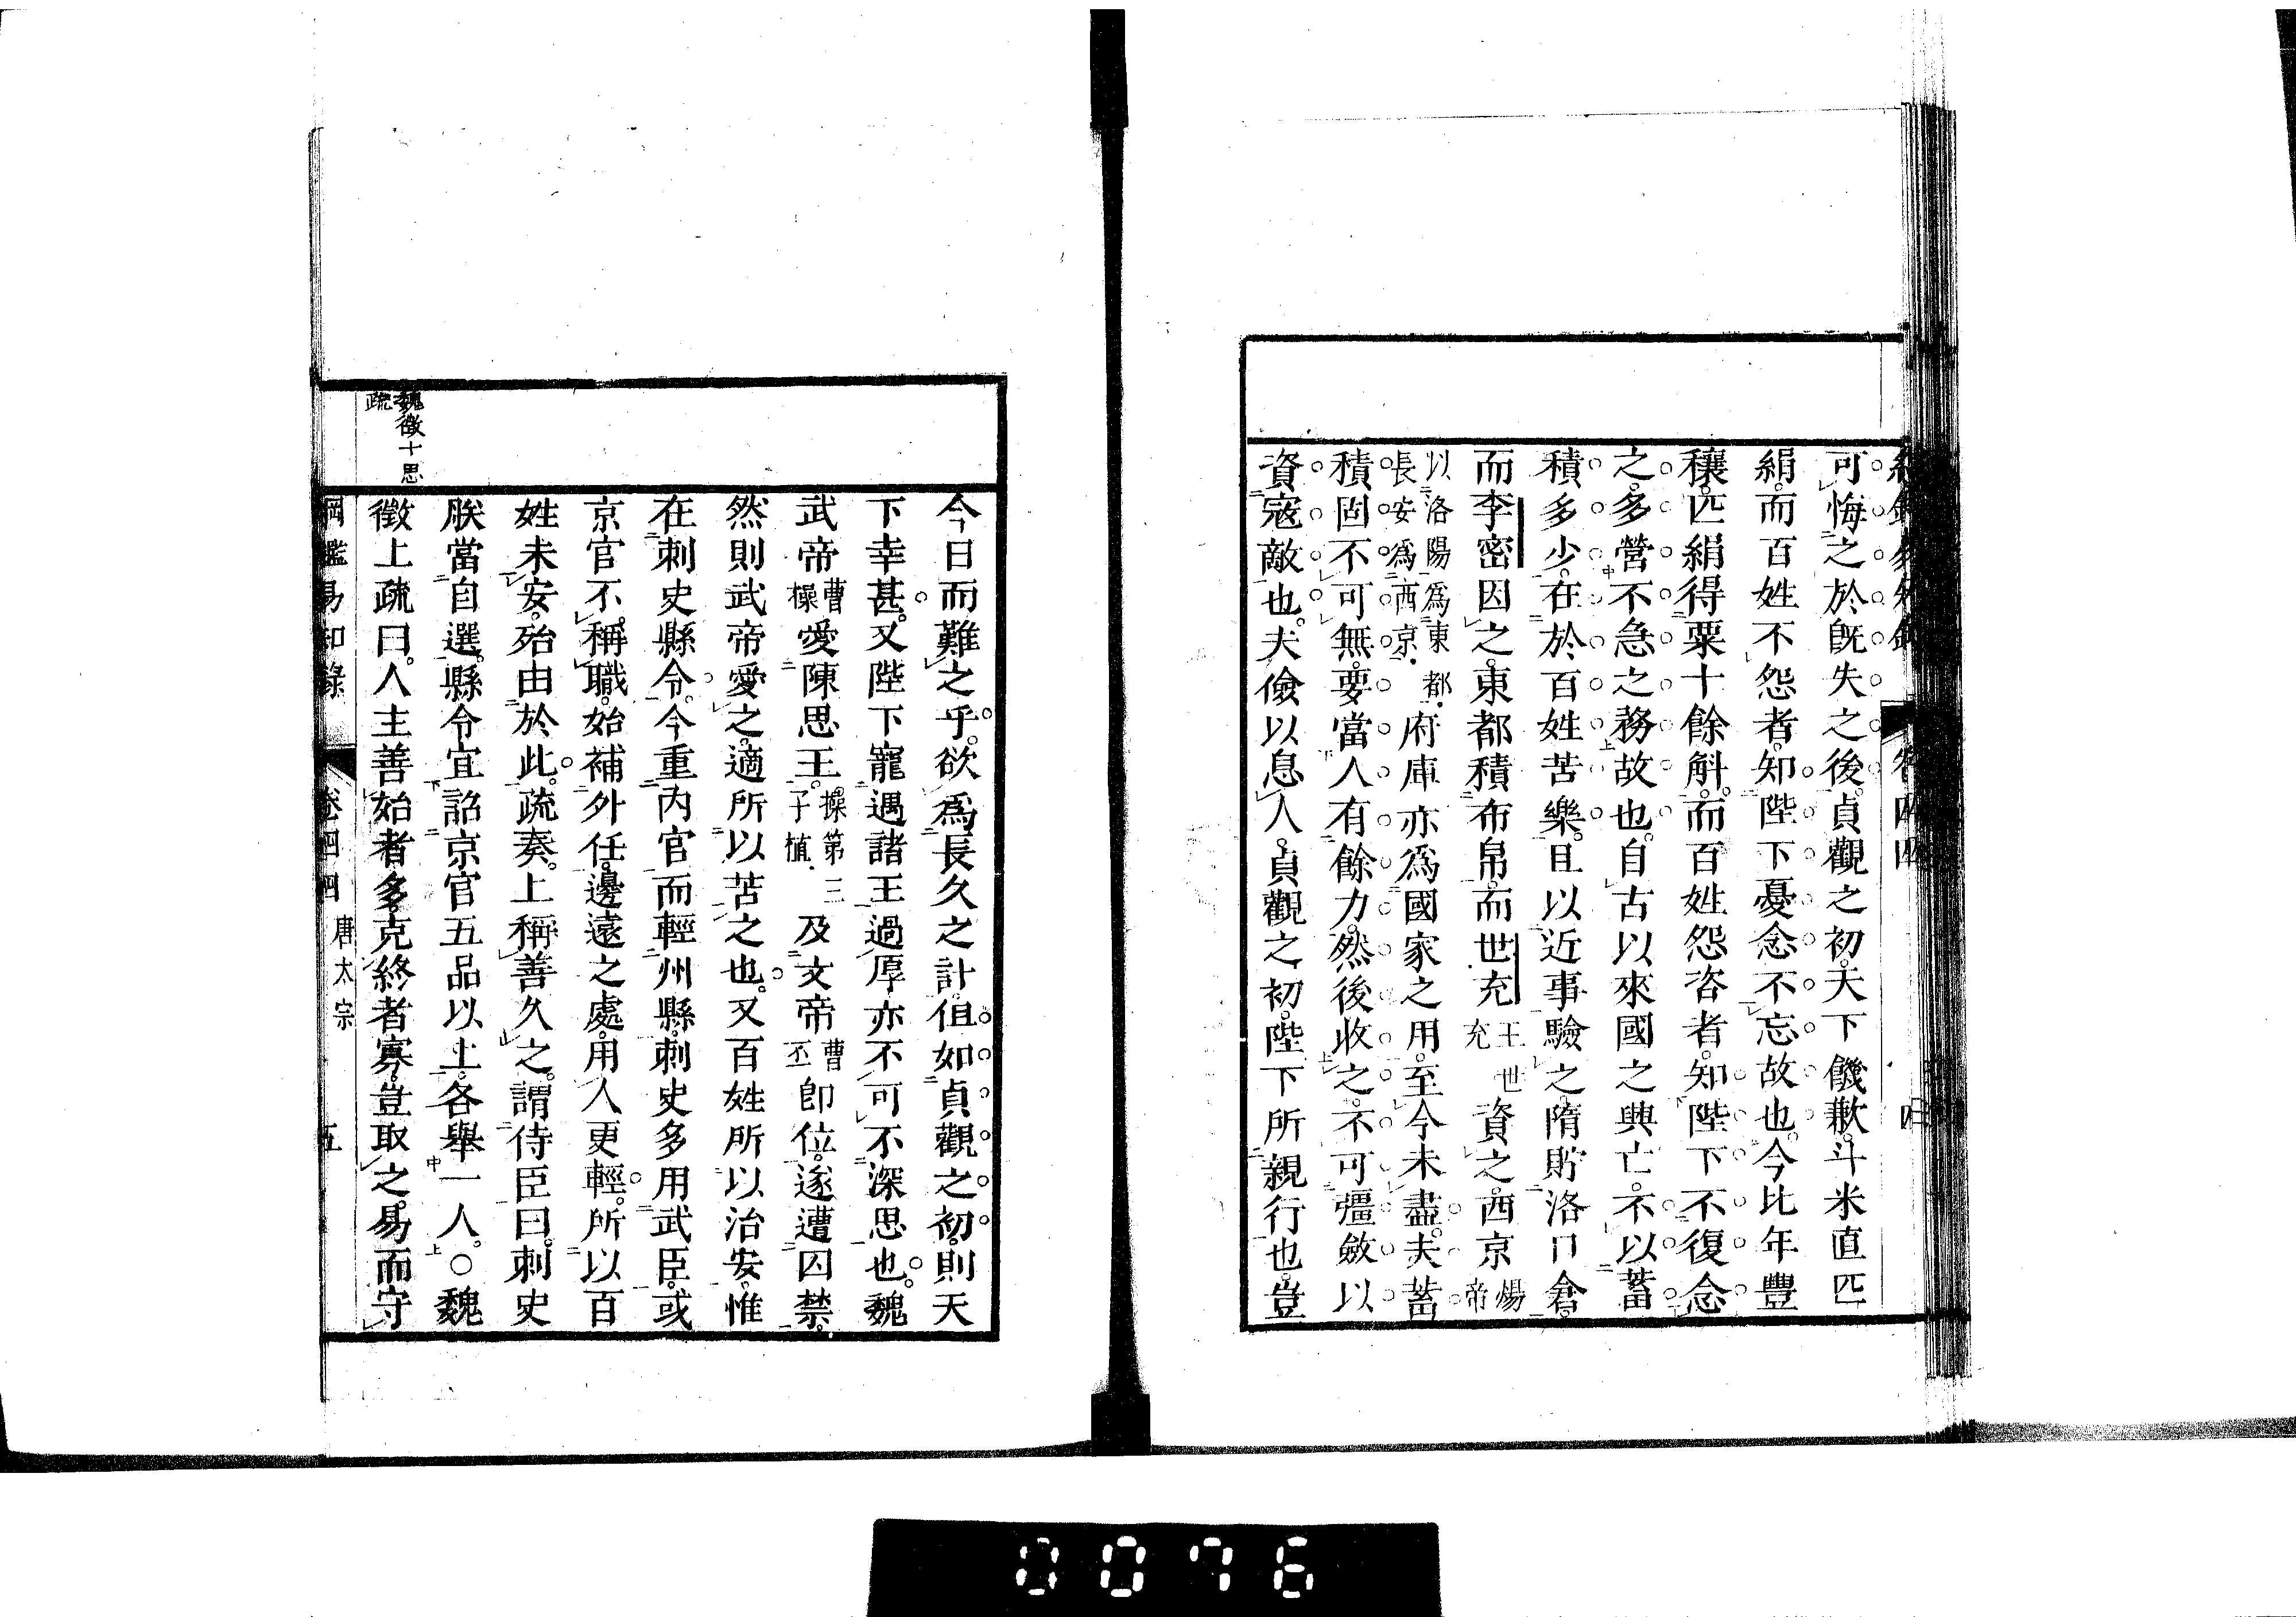 可悔之於旣失之後。貞觀之初。天下饑歉。斗米直匹
絹。而百姓不怨者。知陛下憂念不忘故也。今比年豐
穰。匹絹得粟十餘斛。而百姓怨咨者。知陛下不復念
之。多營不急之務故也。自古以來國之興亡。不以蓄
積多少。在於百姓苦樂。且以近事驗之。隋貯洛口倉。
而李密因之。東都積布帛。而世充王世充資之。西京煬帝
以洛陽爲東都。長安爲西京。府庫亦爲國家之用。至今未盡。夫蓄
積固不可無。要當人有餘力。然後收之。不可彊斂以
資寇敵也。夫儉以息人。貞觀之初。陛下所親行也。豈
今日而難之乎。欲爲長久之計。但如貞觀之初。則天
下幸甚。又陛下寵遇諸王過厚。亦不可不深思也。魏
武帝曹操愛陳思王。操第三子植。及文帝曹丕卽位。遂遭囚禁。
然則武帝愛之。適所以苦之也。又百姓所以治安。惟
在刺史縣令。今重內官而輕州縣。刺史多用武臣。或
京官不稱職。始補外任。邊遠之處。用人更輕。所以百
姓未安。殆由於此。疏奏。上稱善久之。謂侍臣曰。刺史
朕當自選。縣令宜詔京官五品以上。各舉一人。○魏
魏徵十思
疏
徵上疏曰。人主善始者多。克終者寡。豈取之易而守
綱鑑易知錄 卷四四 唐太宗 五
0076